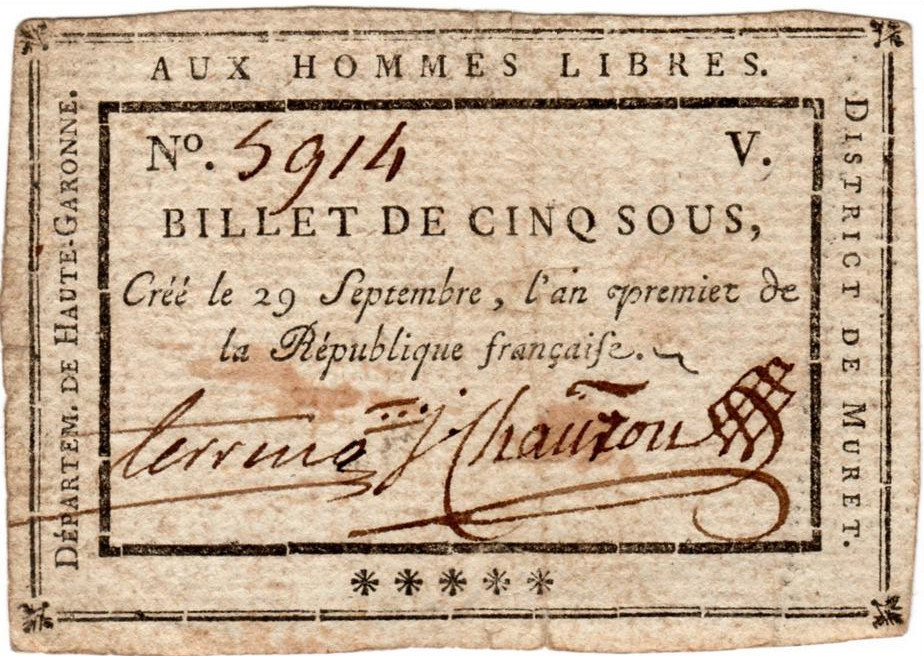 AUX HOMMES LIBRES.
DÉPARTEM. DE HAUTE-GARONNE.
Nº. 5914 V.
BILLET DE CINQ SOUS,
Créé le 29 Septembre, l'an premier de
la République françaiſe.
DISTRICT DE MURET.